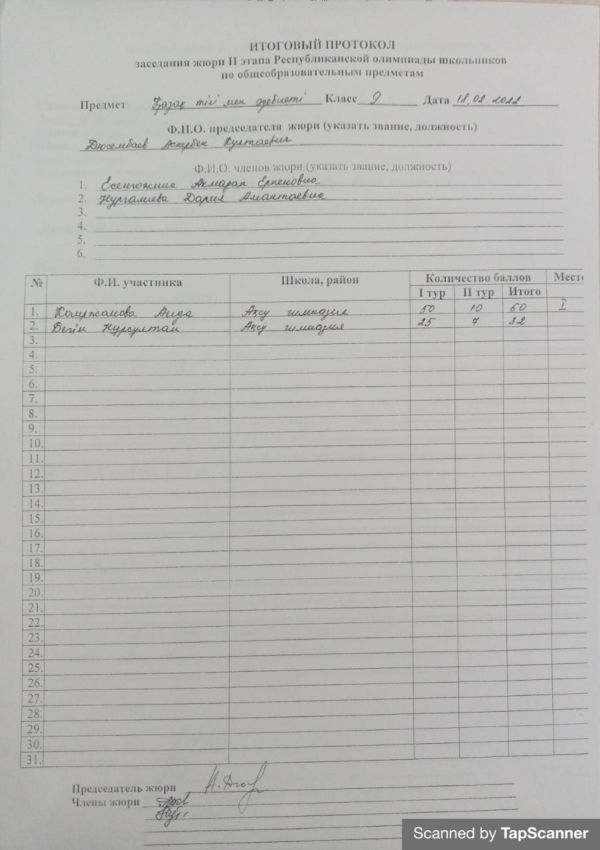 ИТОГОВЫЙ ПРОТОКОЛ
заседания жюри II этапа Республиканской олимпиады школьников
по общеобразовательным предметам
Предмет Қазақ тілі мен әдебиеті Класс 9 Дата 18.02.2022
Ф.И.О. председателя жюри (указать звание, должность)
Дюсембаев Аскербек
Ф.И.О. членов жюри (указать звание, должность)
1. Есенжолина Акмарал Ергеновна
2. Нургалиева Дария Амантаевна
3.
4.
5.
6.
№ Ф.И. участника Школа, район Количество баллов Место
I тур II тур Итого
1. Аида Ақсу гимназия 50 10 60 I
2. Бегін Нурсултан Ақсу гимназия 25 7 32
3.
4.
5.
6.
7.
8.
9.
10.
11.
12.
13.
14.
15.
16.
17.
18.
19.
20.
21.
22.
23.
24.
25.
26.
27.
28.
29.
30.
31.
Председатель жюри
Члены жюри
Scanned by TapScanner